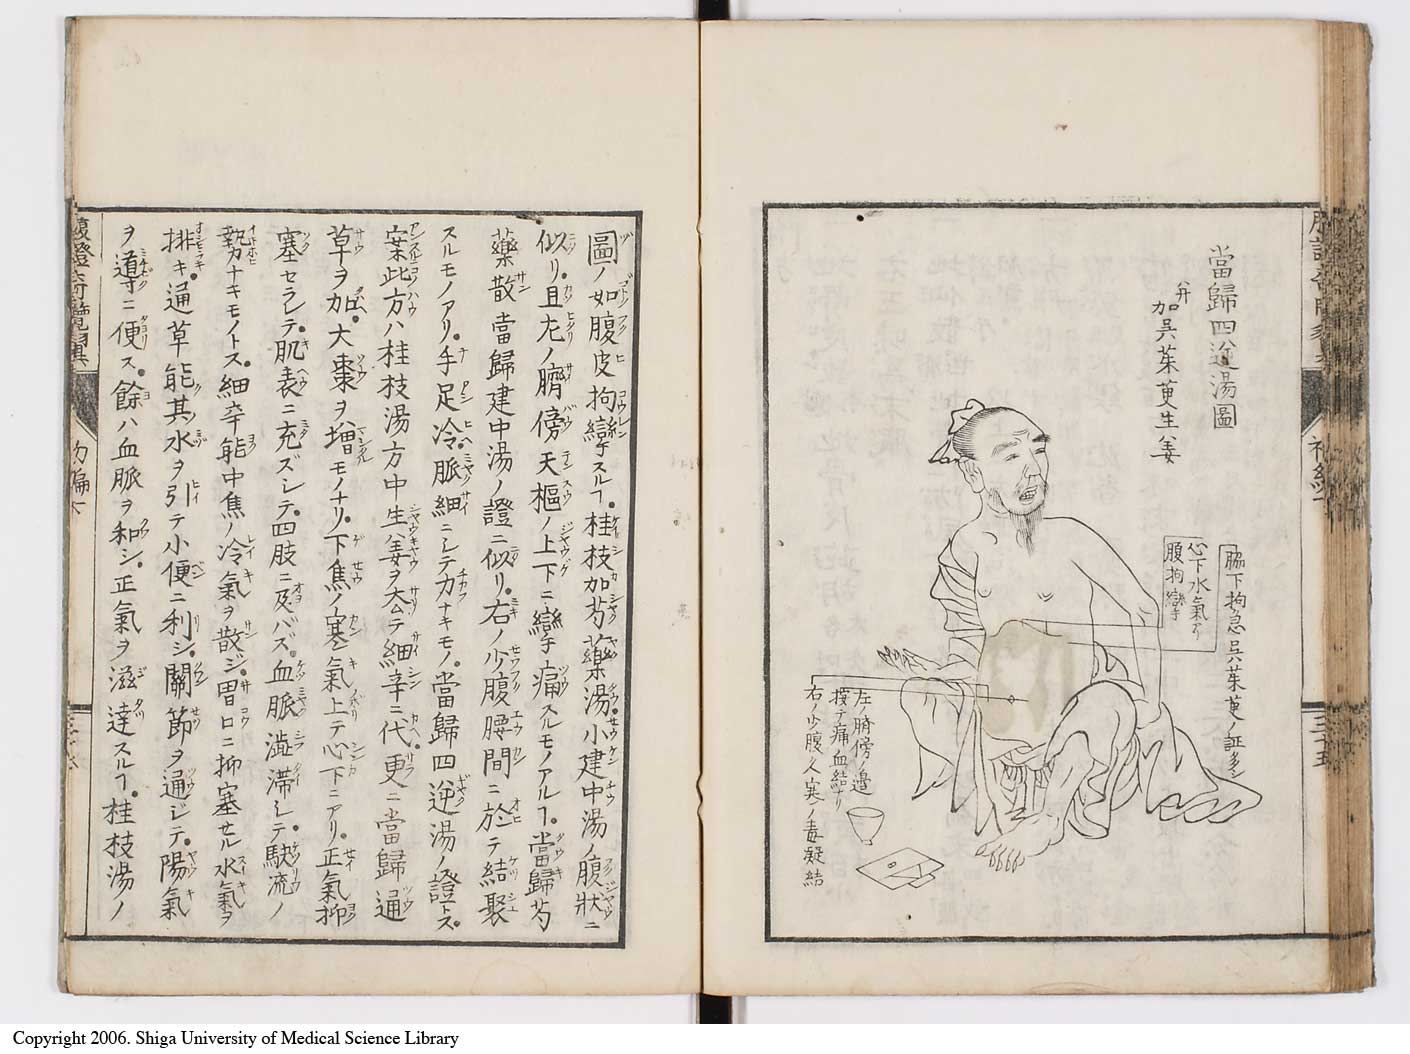 當歸四逆湯圖
并加呉茱萸生姜
脇下拘急呉茱萸ノ証多シ
心下水氣アリ
腹拘攣
左ノ臍傍ノ邉
按テ痛血結ナリ
右ノ少腹久寒ノ毒凝結
圖ノ如腹皮拘攣スルヿ桂枝加芍藥湯小建中湯ノ腹狀ニ
似リ且左ノ臍傍天樞ノ上下ニ攣痛スルモノアルヿ當歸芍
藥散當歸建中湯ノ證ニ似リ右ノ少腹腰間ニ於テ結聚
スルモノアリ手足冷脈細ニシテ力ナキモノ當歸四逆湯ノ證トス
案此方ハ桂枝湯方中生姜ヲ去テ細辛ニ代更ニ當歸通
草ヲ加大棗ヲ増モノナリ下焦ノ寒氣上テ心下ニアリ正氣抑
塞セラレテ肌表ニ充ズシテ四肢ニ及バズ血脈澁滞シテ駃流ノ
勢力ナキモノトス細辛能中焦ノ冷氣ヲ散ジ胃口ニ抑塞セル水氣ヲ
排キ通草能其水ヲ引テ小便ニ利シ關節ヲ通ジテ陽氣
ヲ導ニ便ス餘ハ血脈ヲ和シ正氣ヲ滋達スルヿ桂枝湯ノ
腹證奇覽翼